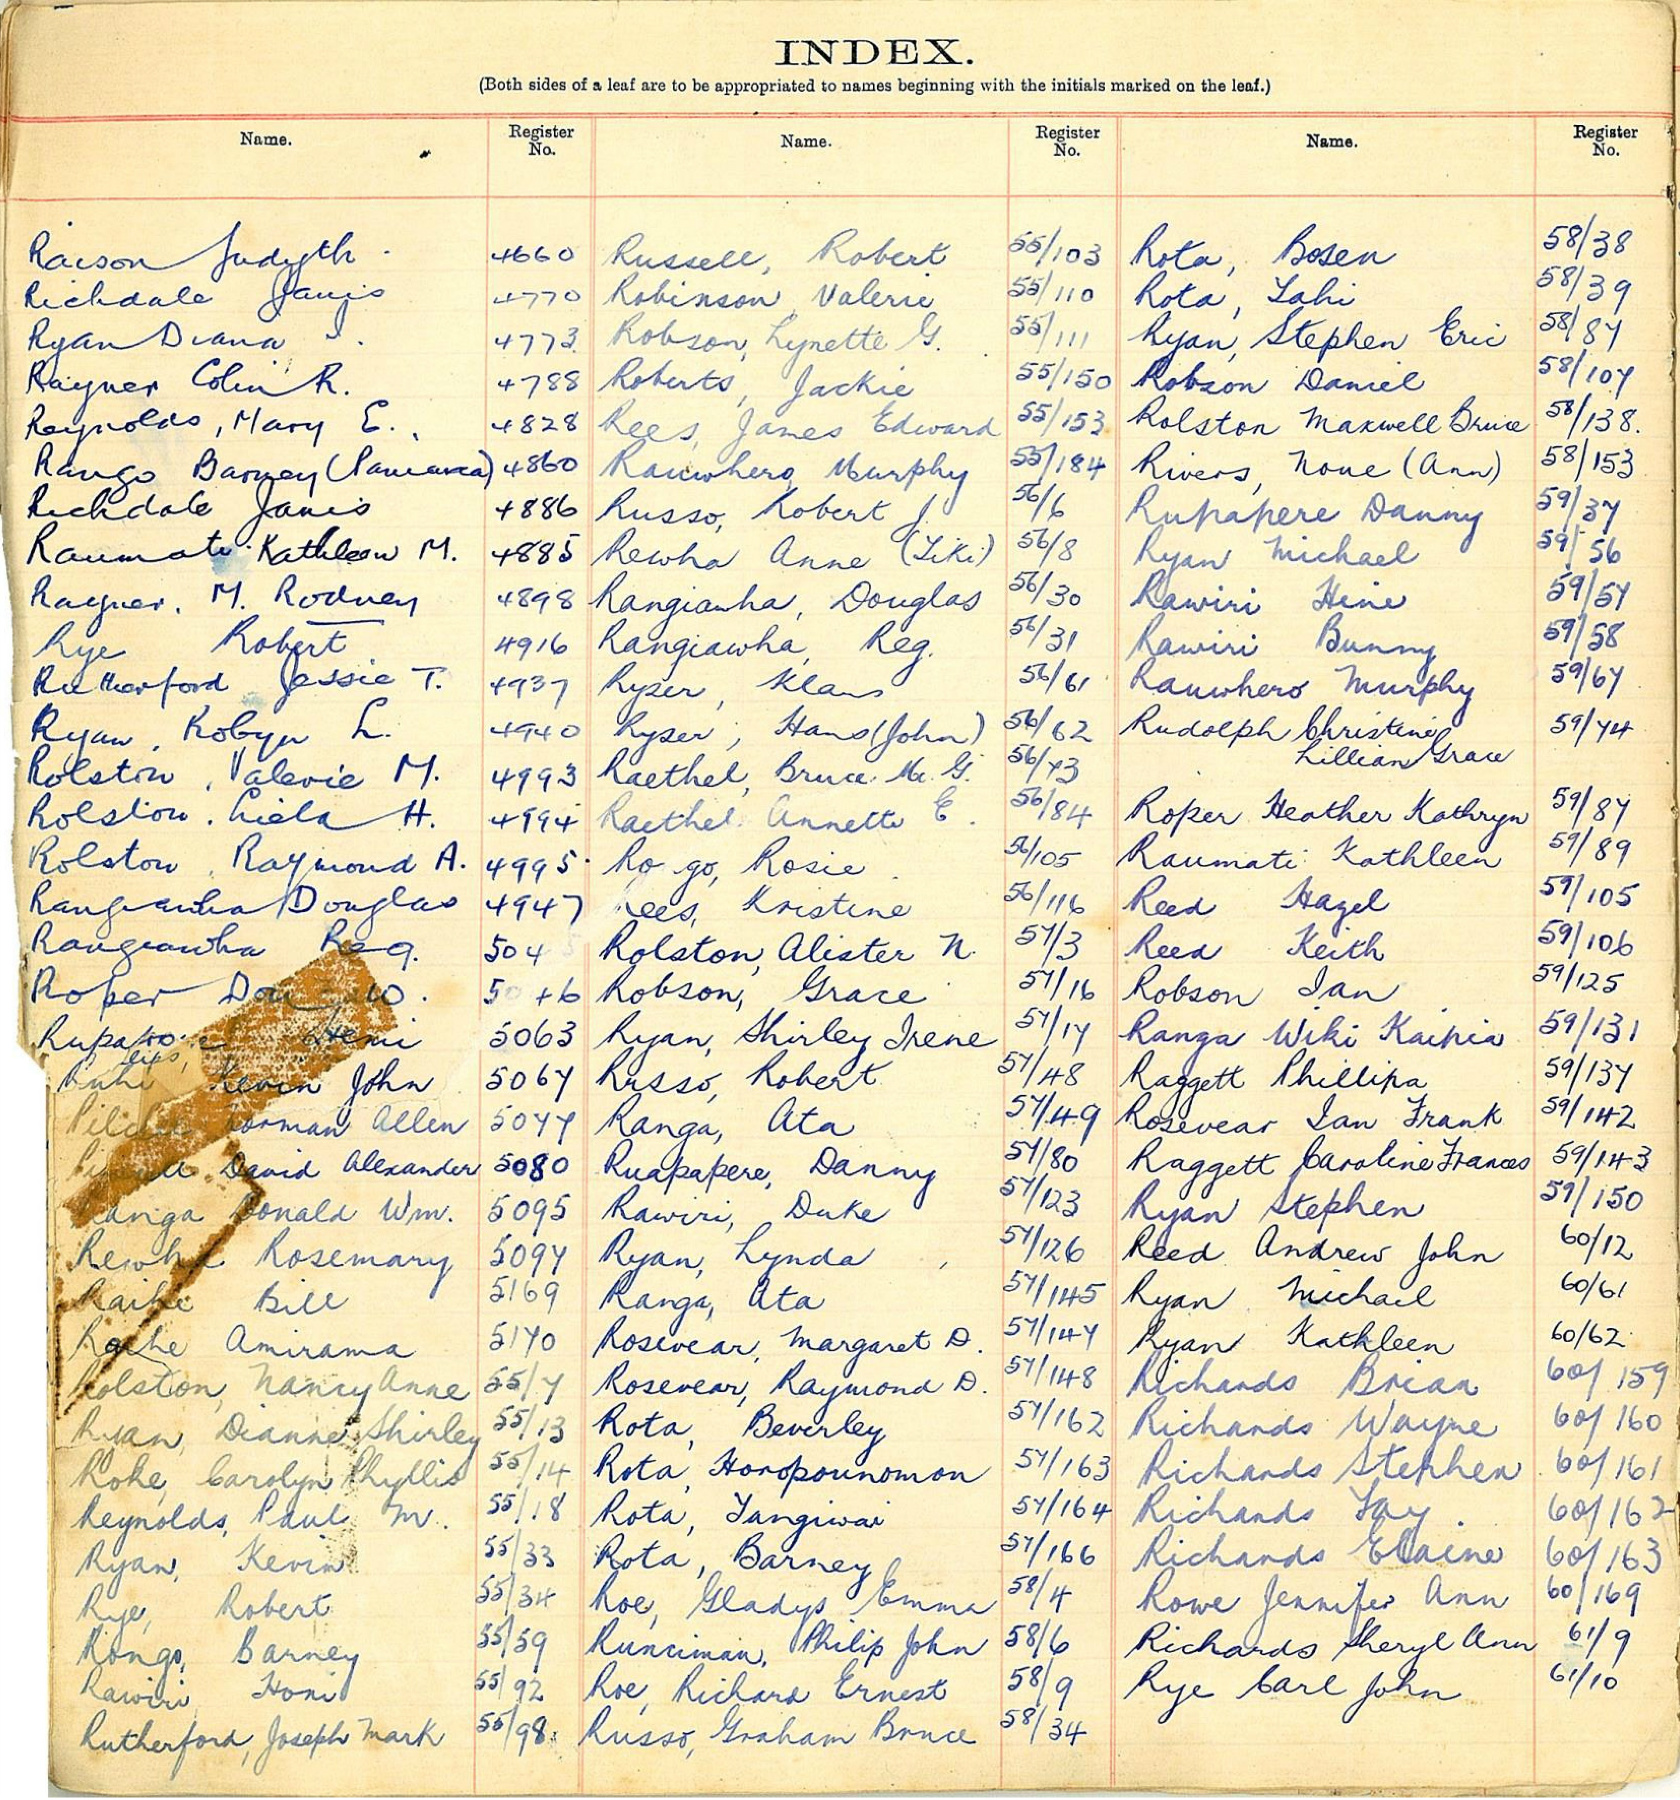 INDEX.
(Both sides of a leaf are to be appropriated to names beginning with the initials marked on the leaf.)
Name. Register No. Name. Register No. Name. Register No.
Raison Judyth 4660
Richdale Janis 4770
Ryan Diana J. 4773
Rayner Colin R. 4788
Reynolds, Mary E. 4828
Rango Barney 4860
Richdale Janis 4886
Raumati Kathleen M. 4885
Rayner, M. Rodney 4898
Rye Robert 4916
Rutherford Jessie T. 4937
Ryan, Robyn L. 4940
Rolston, Valerie M. 4993
Rolston, H. 4994
Rolston, Raymond A. 4995
Rangiawha Douglas 4947
Rangiawha Reg. 504
Roper Don W. 5046
Hemi 5063
Kevin John 5067
Norman Allen 5077
David Alexander 5080
Ranga Donald Wm. 5095
Rewha Rosemary 5097
Raihe Bill 5169
Raihe Amirama 5170
Rolston, Nancy Anne 55/7
Ryan, Dianne Shirley 55/13
Rohe, Carolyn Phyllis 55/14
Reynolds, Paul M. 55/18
Ryan, Kevin 55/33
Rye, Robert 55/34
Rongo, Barney 55/59
Rawiri, Honi 55/92
Rutherford, Joseph Mark 55/98
Russell, Robert 55/103
Robinson, Valerie 55/110
Robson, Lynette G. 55/111
Roberts, Jackie 55/150
Rees, James Edward 55/153
Rauwhero, Murphy 55/184
Russo, Robert J. 56/6
Rewha Anne (Tiki) 56/8
Rangiawha, Douglas 56/30
Rangiawha, Reg. 56/31
Ryser, Klaus 56/61
Ryser, Hans (John) 56/62
Raethel, Bruce Mc. G. 56/73
Raethel Annette E. 56/84
Ro go, Rosie 56/105
Rees, Kristine 56/116
Rolston, Alister N. 57/3
Robson, Grace 57/16
Ryan, Shirley Irene 57/17
Russo, Robert 57/48
Ranga, Ata 57/49
Ruapapere, Danny 57/80
Rawiri, Duke 57/123
Ryan, Lynda 57/126
Ranga, Ata 57/145
Rosevear, Margaret D. 57/147
Rosevear, Raymond D. 57/148
Rota, Beverley 57/162
Rota, Horopounomon 57/163
Rota, Tangiwai 57/164
Rota, Barney 57/166
Roe, Gladys Emma 58/4
Runciman, Philip John 58/6
Roe, Richard Ernest 58/9
Russo, Graham Bruce 58/34
Rota, Bosen 58/38
Rota, Tahi 58/39
Ryan, Stephen Eric 58/87
Robson Daniel 58/107
Rolston Maxwell Bruce 58/138.
Rivers, None (Ann) 58/153
Rupapere Danny 59/37
Ryan Michael 59/56
Rawiri Hine 59/57
Rawiri Bunny 59/58
Rauwhero Murphy 59/67
Rudolph Christine 59/74
Lillian Grace
Roper Heather Kathryn 59/87
Raumati Kathleen 59/89
Reed Hazel 59/105
Reed Keith 59/106
Robson Ian 59/125
Ranga Wiki Kaipia 59/131
Raggett Phillipa 59/137
Rosevear Ian Frank 59/142
Raggett Caroline Frances 59/143
Ryan Stephen 59/150
Reed Andrew John 60/12
Ryan Michael 60/61
Ryan Kathleen 60/62
Richards Brian 60/159
Richards Wayne 60/160
Richards Stephen 60/161
Richards Fay 60/162
Richards Elaine 60/163
Rowe Jennifer Ann 60/169
Richards Sheryl Ann 61/9
Rye Carl John 61/10